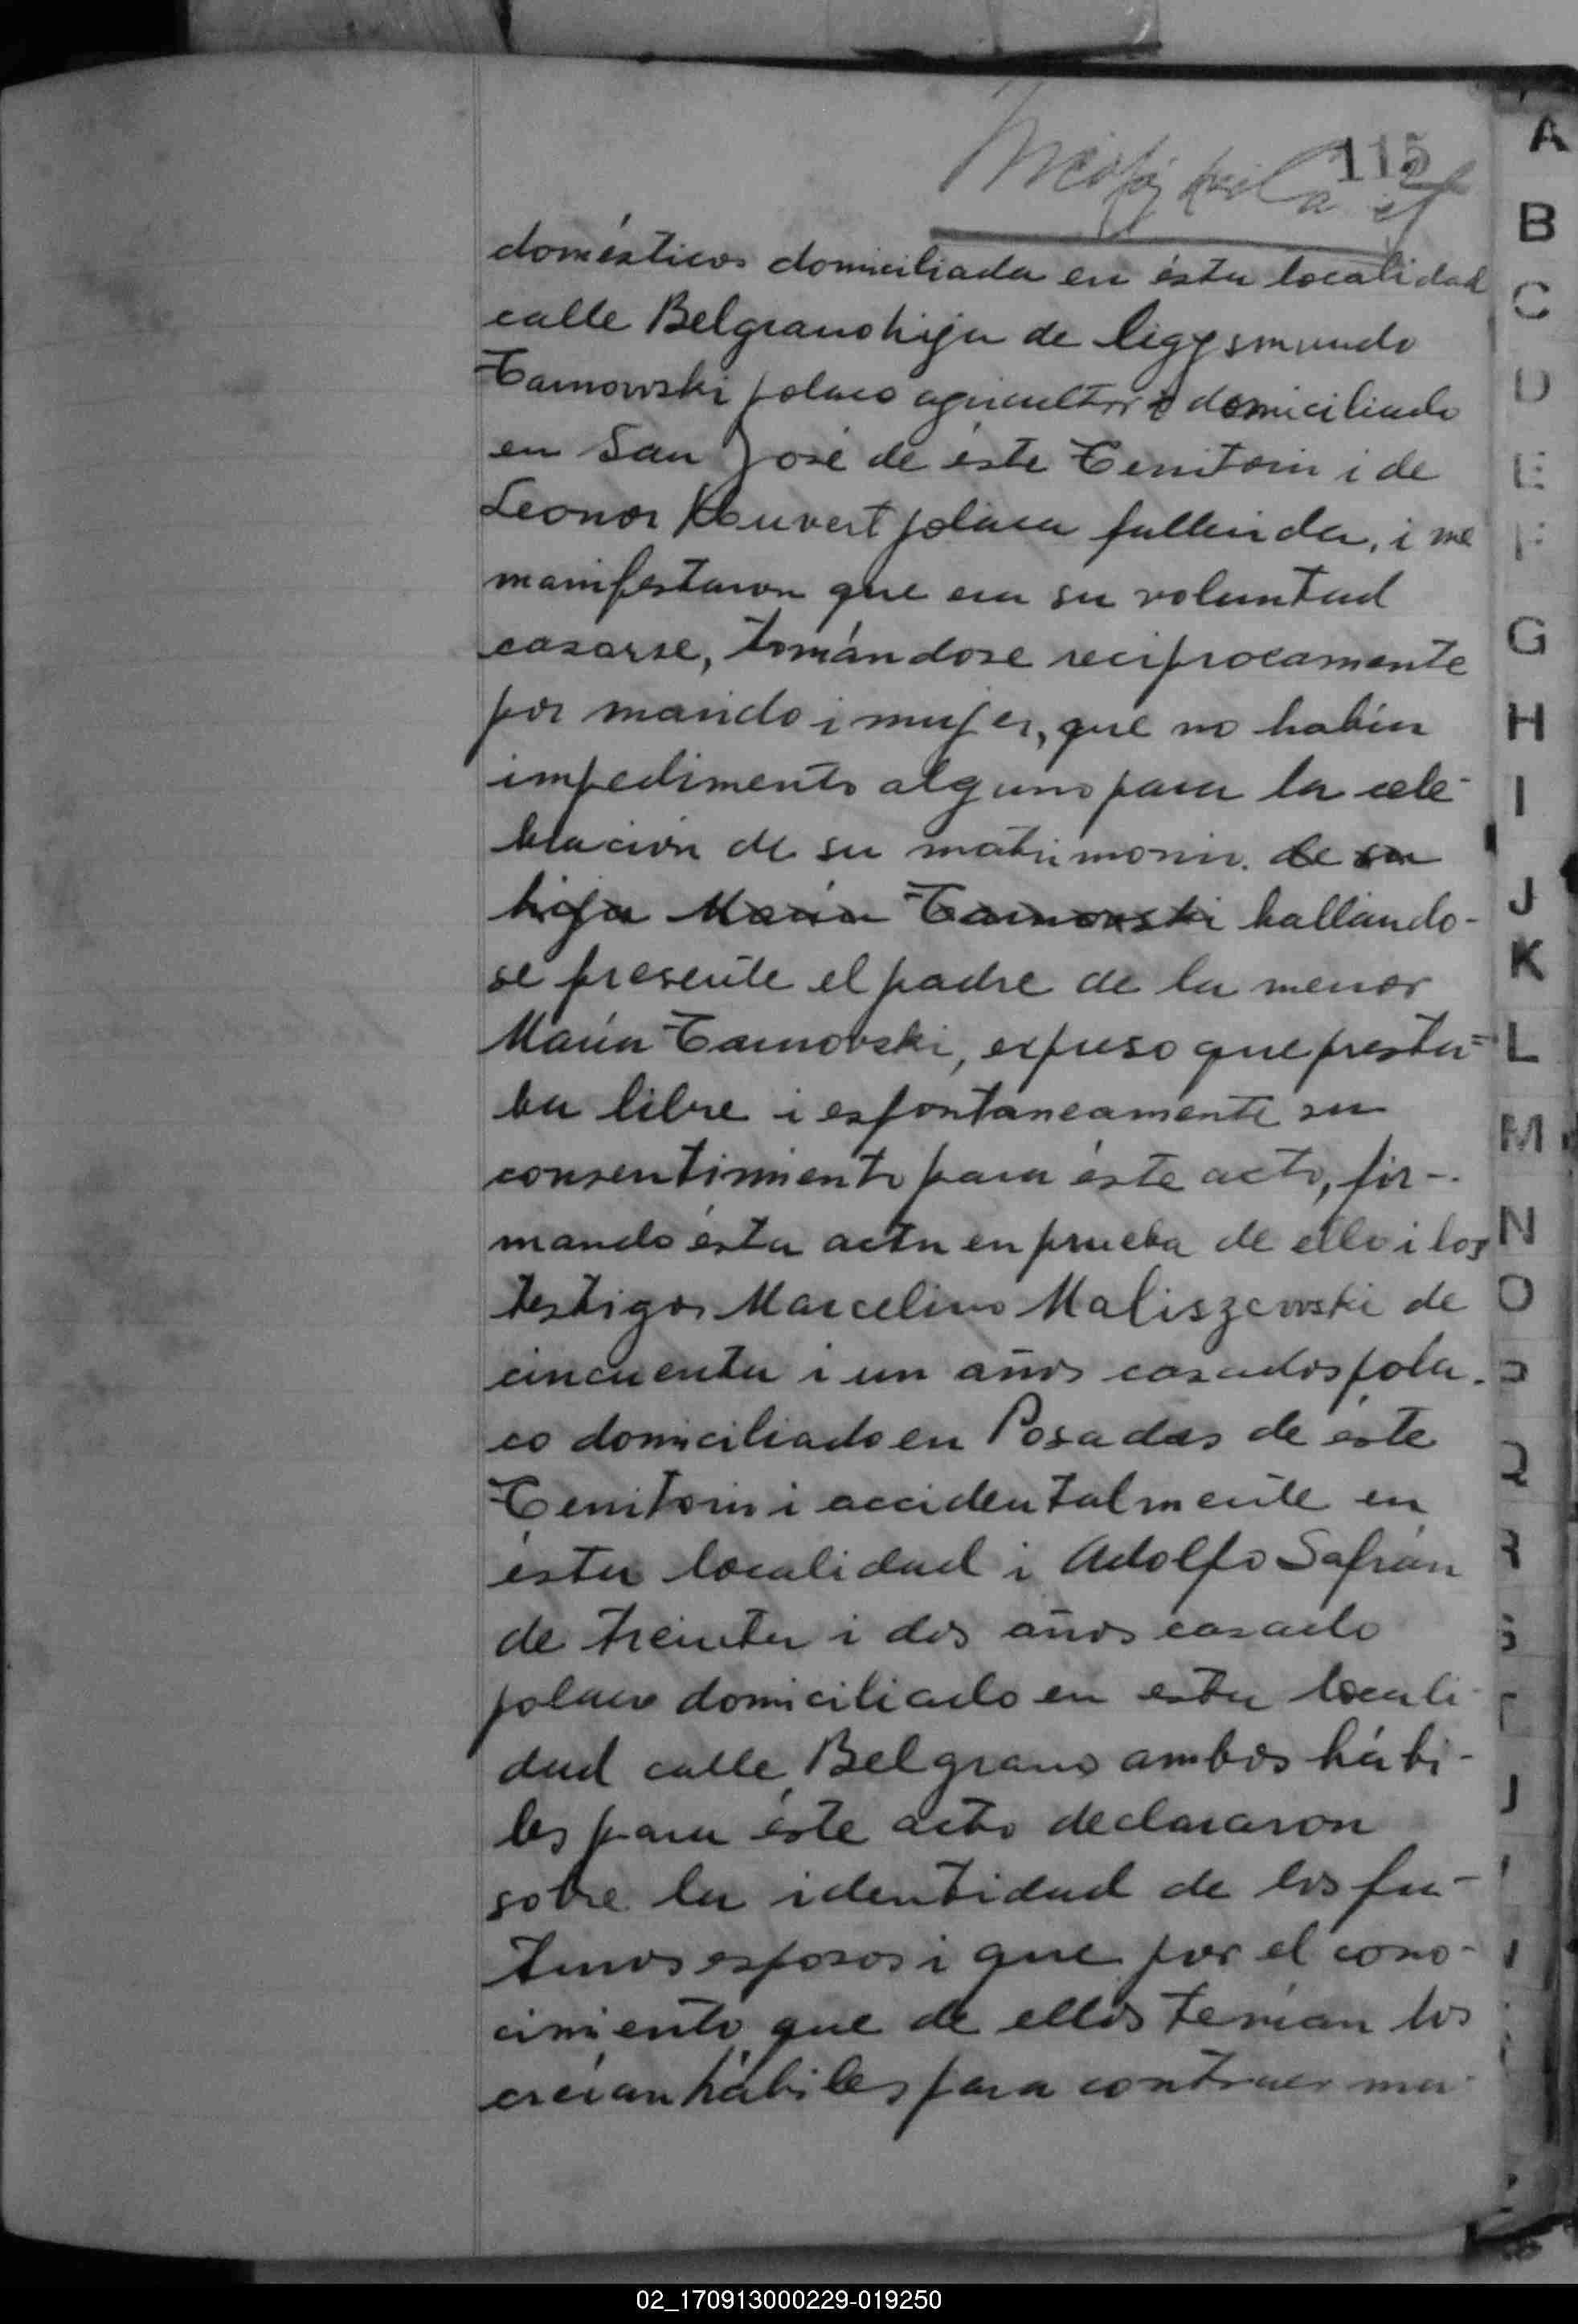 115
domésticos domiciliada en ésta localidad
calle Belgrano hija de Ligysmundo
Tarnowski polaco agricultor domiciliado
en San José de éste Territorio i de
Leonor polaca fallecida, i me
manifestaron que era su voluntad
casarse, tomándose reciprocamente
por marido i mujer, que no había
impedimento alguno para la cele-
bración de su matrimonio. de su
hija María Tarnowski hallándo-
se presente el padre de la menor
María Tarnovski, expuso que presta=
ba libre i espontaneamente su
consentimiento para éste acto, fir-
mando ésta acta en prueba de ello i los
testigos Marcelino Maliszewski de
cincuenta i un años casados pola-
co domiciliado en Posadas de éste
Territorio i accidentalmente en
ésta localidad i Adolfo Safrán
de treinta i dos años casado
polaco domiciliado en esta locali-
dad calle Belgrano ambos hábi-
les para éste acto declararon
sobre la identidad de los fu-
turos esposos i que por el cono-
cimiento que de ellos tenían los
creían hábiles para contraer ma-
A
B
C
D
E
F
G
H
I
J
K
L
M
N
O
02_170913000229-019250